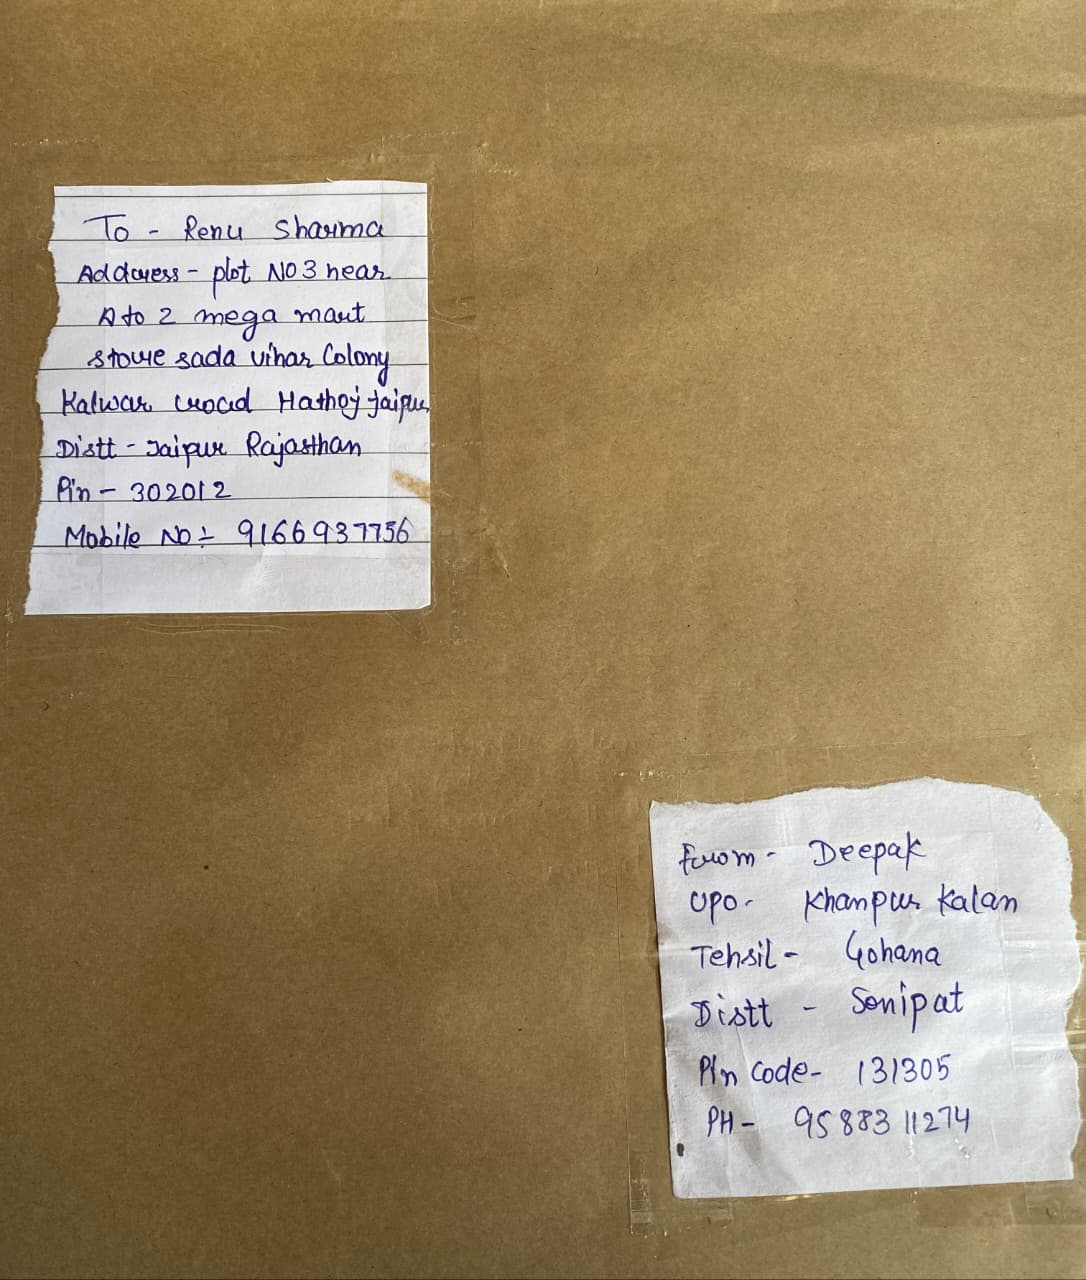 To - Renu Sharma
Address - plot No 3 near
A to Z mega mart
store sada vihar Colony
Kalwar road Hathoj jaipur
Distt - Jaipur Rajasthan
Pin - 302012
Mobile No :- 9166937756
From - Deepak
VPO - Khanpur Kalan
Tehsil - Gohana
Distt - Sonipat
Pin Code - 131305
PH - 9588311274